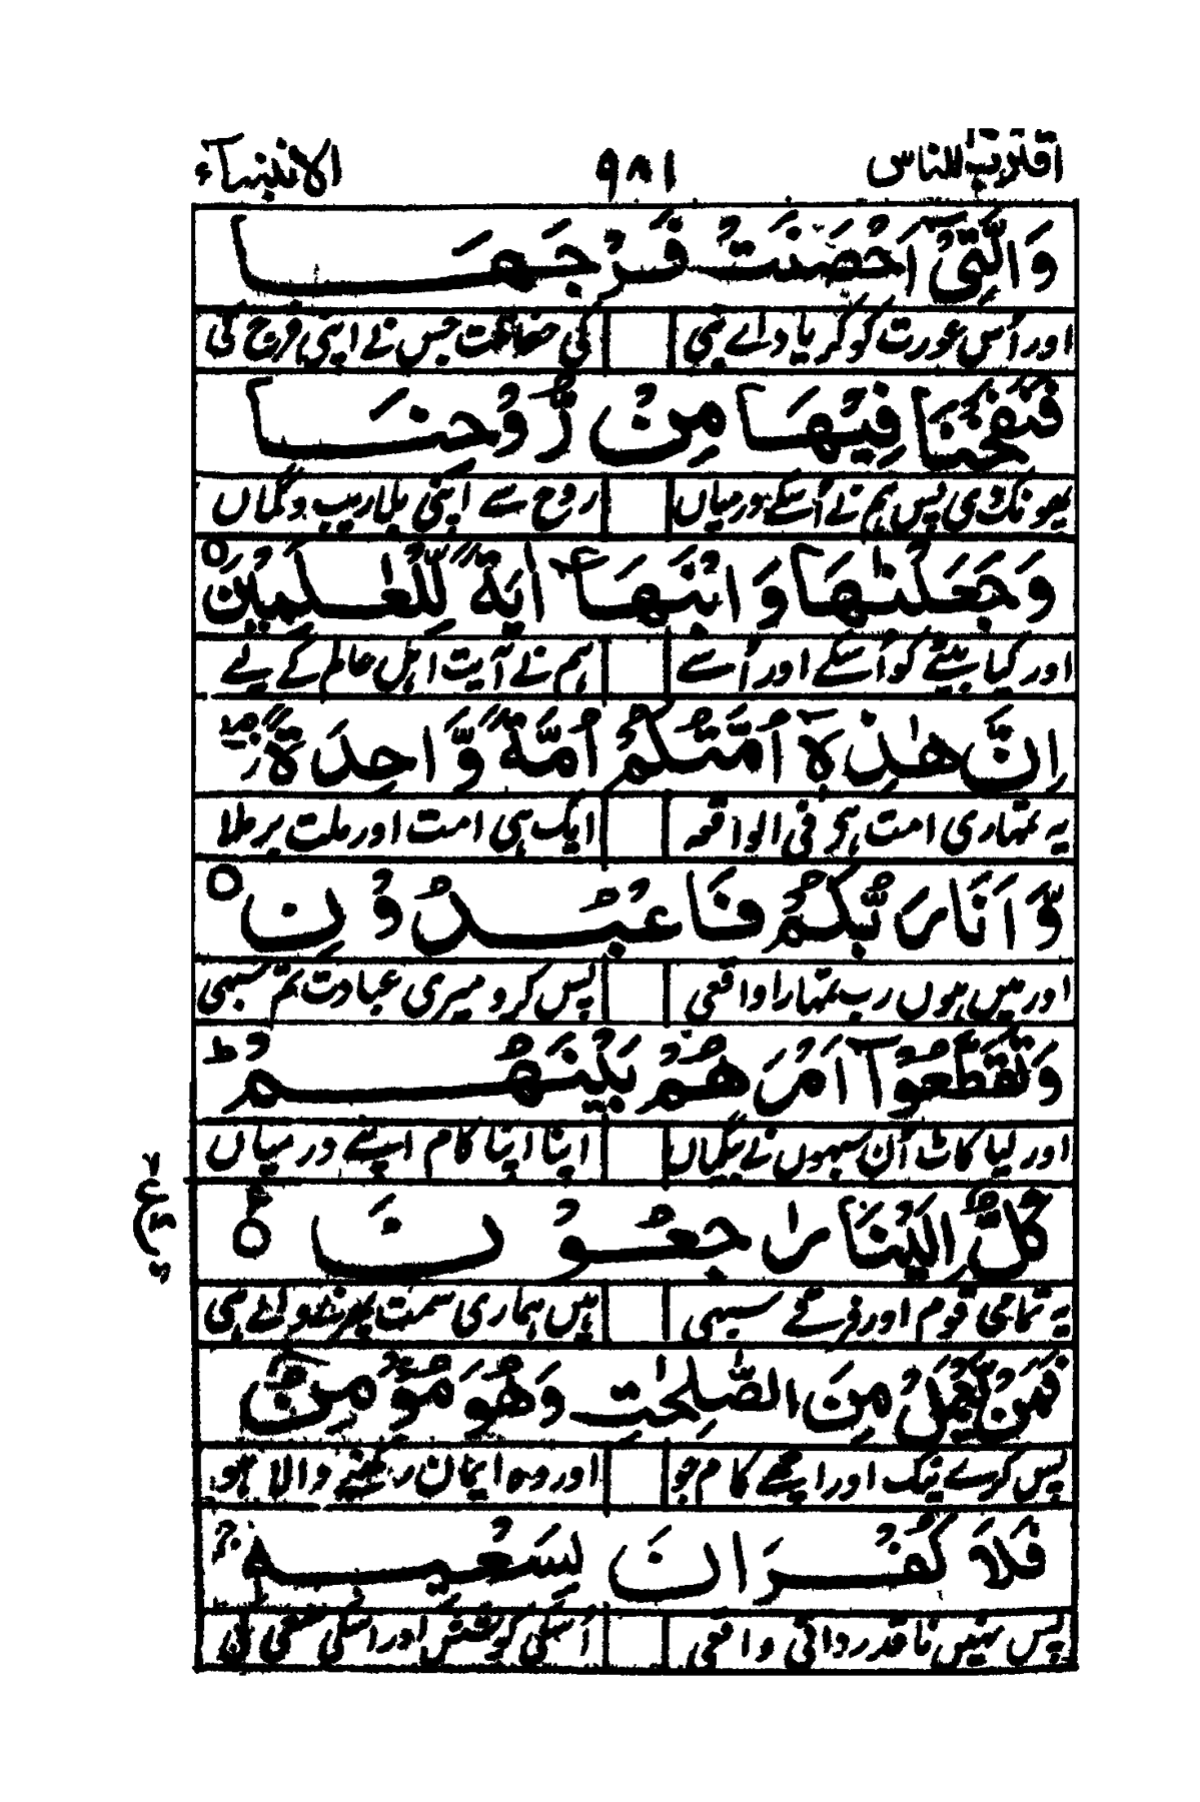 اقترب للناس ٩٨١ الانبیآء
وَالَّتِیْۤ اَحْصَنَتْ فَرْجَهَا
اور اُس عورت کو کر یاد اے نبی کی حفاظت جس نے اپنی فرج کی
فَنَفَخْنَا فِیْهَا مِنْ رُّوْحِنَا
پھونک دی پس ہم نے اُسکے درمیاں روح سے اپنی بلاریب و گماں
وَجَعَلْنٰهَا وَ ابْنَهَاۤ اٰیَةً لِّلْعٰلَمِیْنَ ○
اور کیا بیٹے کو اُسکے اور اُسے ہم نے آیت اہل عالم کے لیے
اِنَّ هٰذِهٖۤ اُمَّتُكُمْ اُمَّةً وَّاحِدَةً ۖ
یہ تمہاری امت ہر فی الواقعہ ایک ہی امت اور ملت برملا
وَّ اَنَا رَبُّكُمْ فَاعْبُدُوْنِ ○
اور میں ہوں رب تمہارا واقعی پس کرو میری عبادت تم سبھی
وَتَقَطَّعُوْۤا اَمْرَهُمْ بَیْنَهُمْ ؕ
اور لیا کاٹ اُن سبھوں نے بیگماں اپنا اپنا کام اپنے درمیاں
كُلٌّ اِلَیْنَا رٰجِعُوْنَ ○ ع
یہ تمامی قوم اور فرقے سبھی ہیں ہماری سمت پھرنے والے ہی
فَمَنْ یَّعْمَلْ مِنَ الصّٰلِحٰتِ وَهُوَ مُؤْمِنٌ
پس کرے نیک اور اچھے کام جو اور وہ ایمان رکھنے والا ہو
فَلَا كُفْرَانَ لِسَعْیِهٖ ۚ
پس نہیں ناقدر دانی واقعی اُسکی کوشش اور اسکی سعی کی